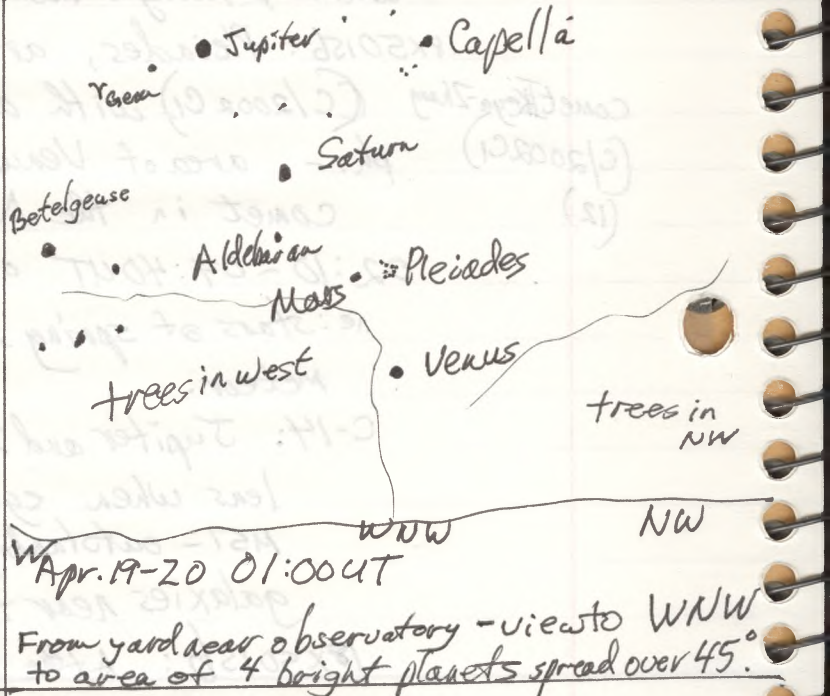 Jupiter
Capella
γ Gem
Saturn
Betelgeuse
Aldebaran
Pleiades
Mars
Venus
trees in west
trees in
NW
WNW
NW
W
Apr. 19-20 01:00UT
From yard near observatory - view to WNW
to area of 4 bright planets spread over 45°.